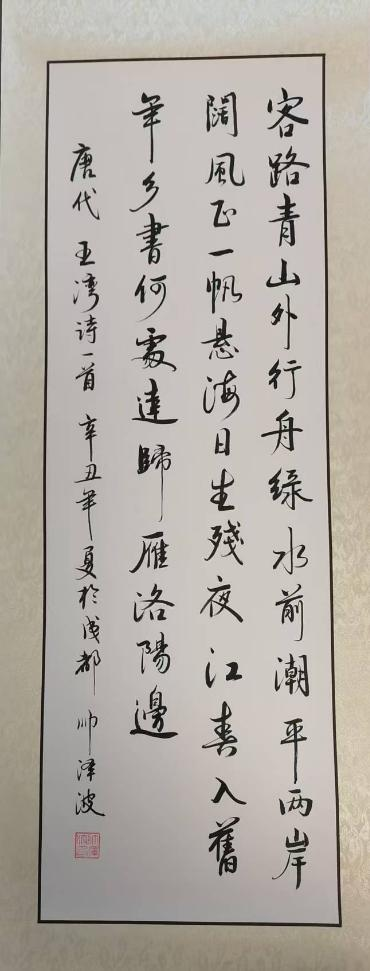 客路青山外行舟綠水前潮平两岸
闊風正一帆悬海日生殘夜江春入舊
年乡書何處達歸雁洛陽邊
唐代 王湾诗一首 辛丑年夏於成都 帅泽波